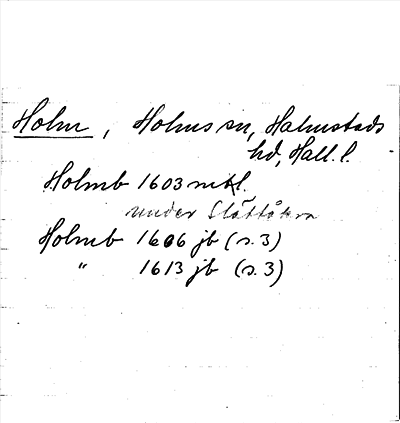 Holm, Holms sn, Halmstads
hd, Hall. l.
Holmb 1603 mtl.
under Slättåkra
Holmb 1606 jb (s. 3)
" 1613 jb (s. 3)